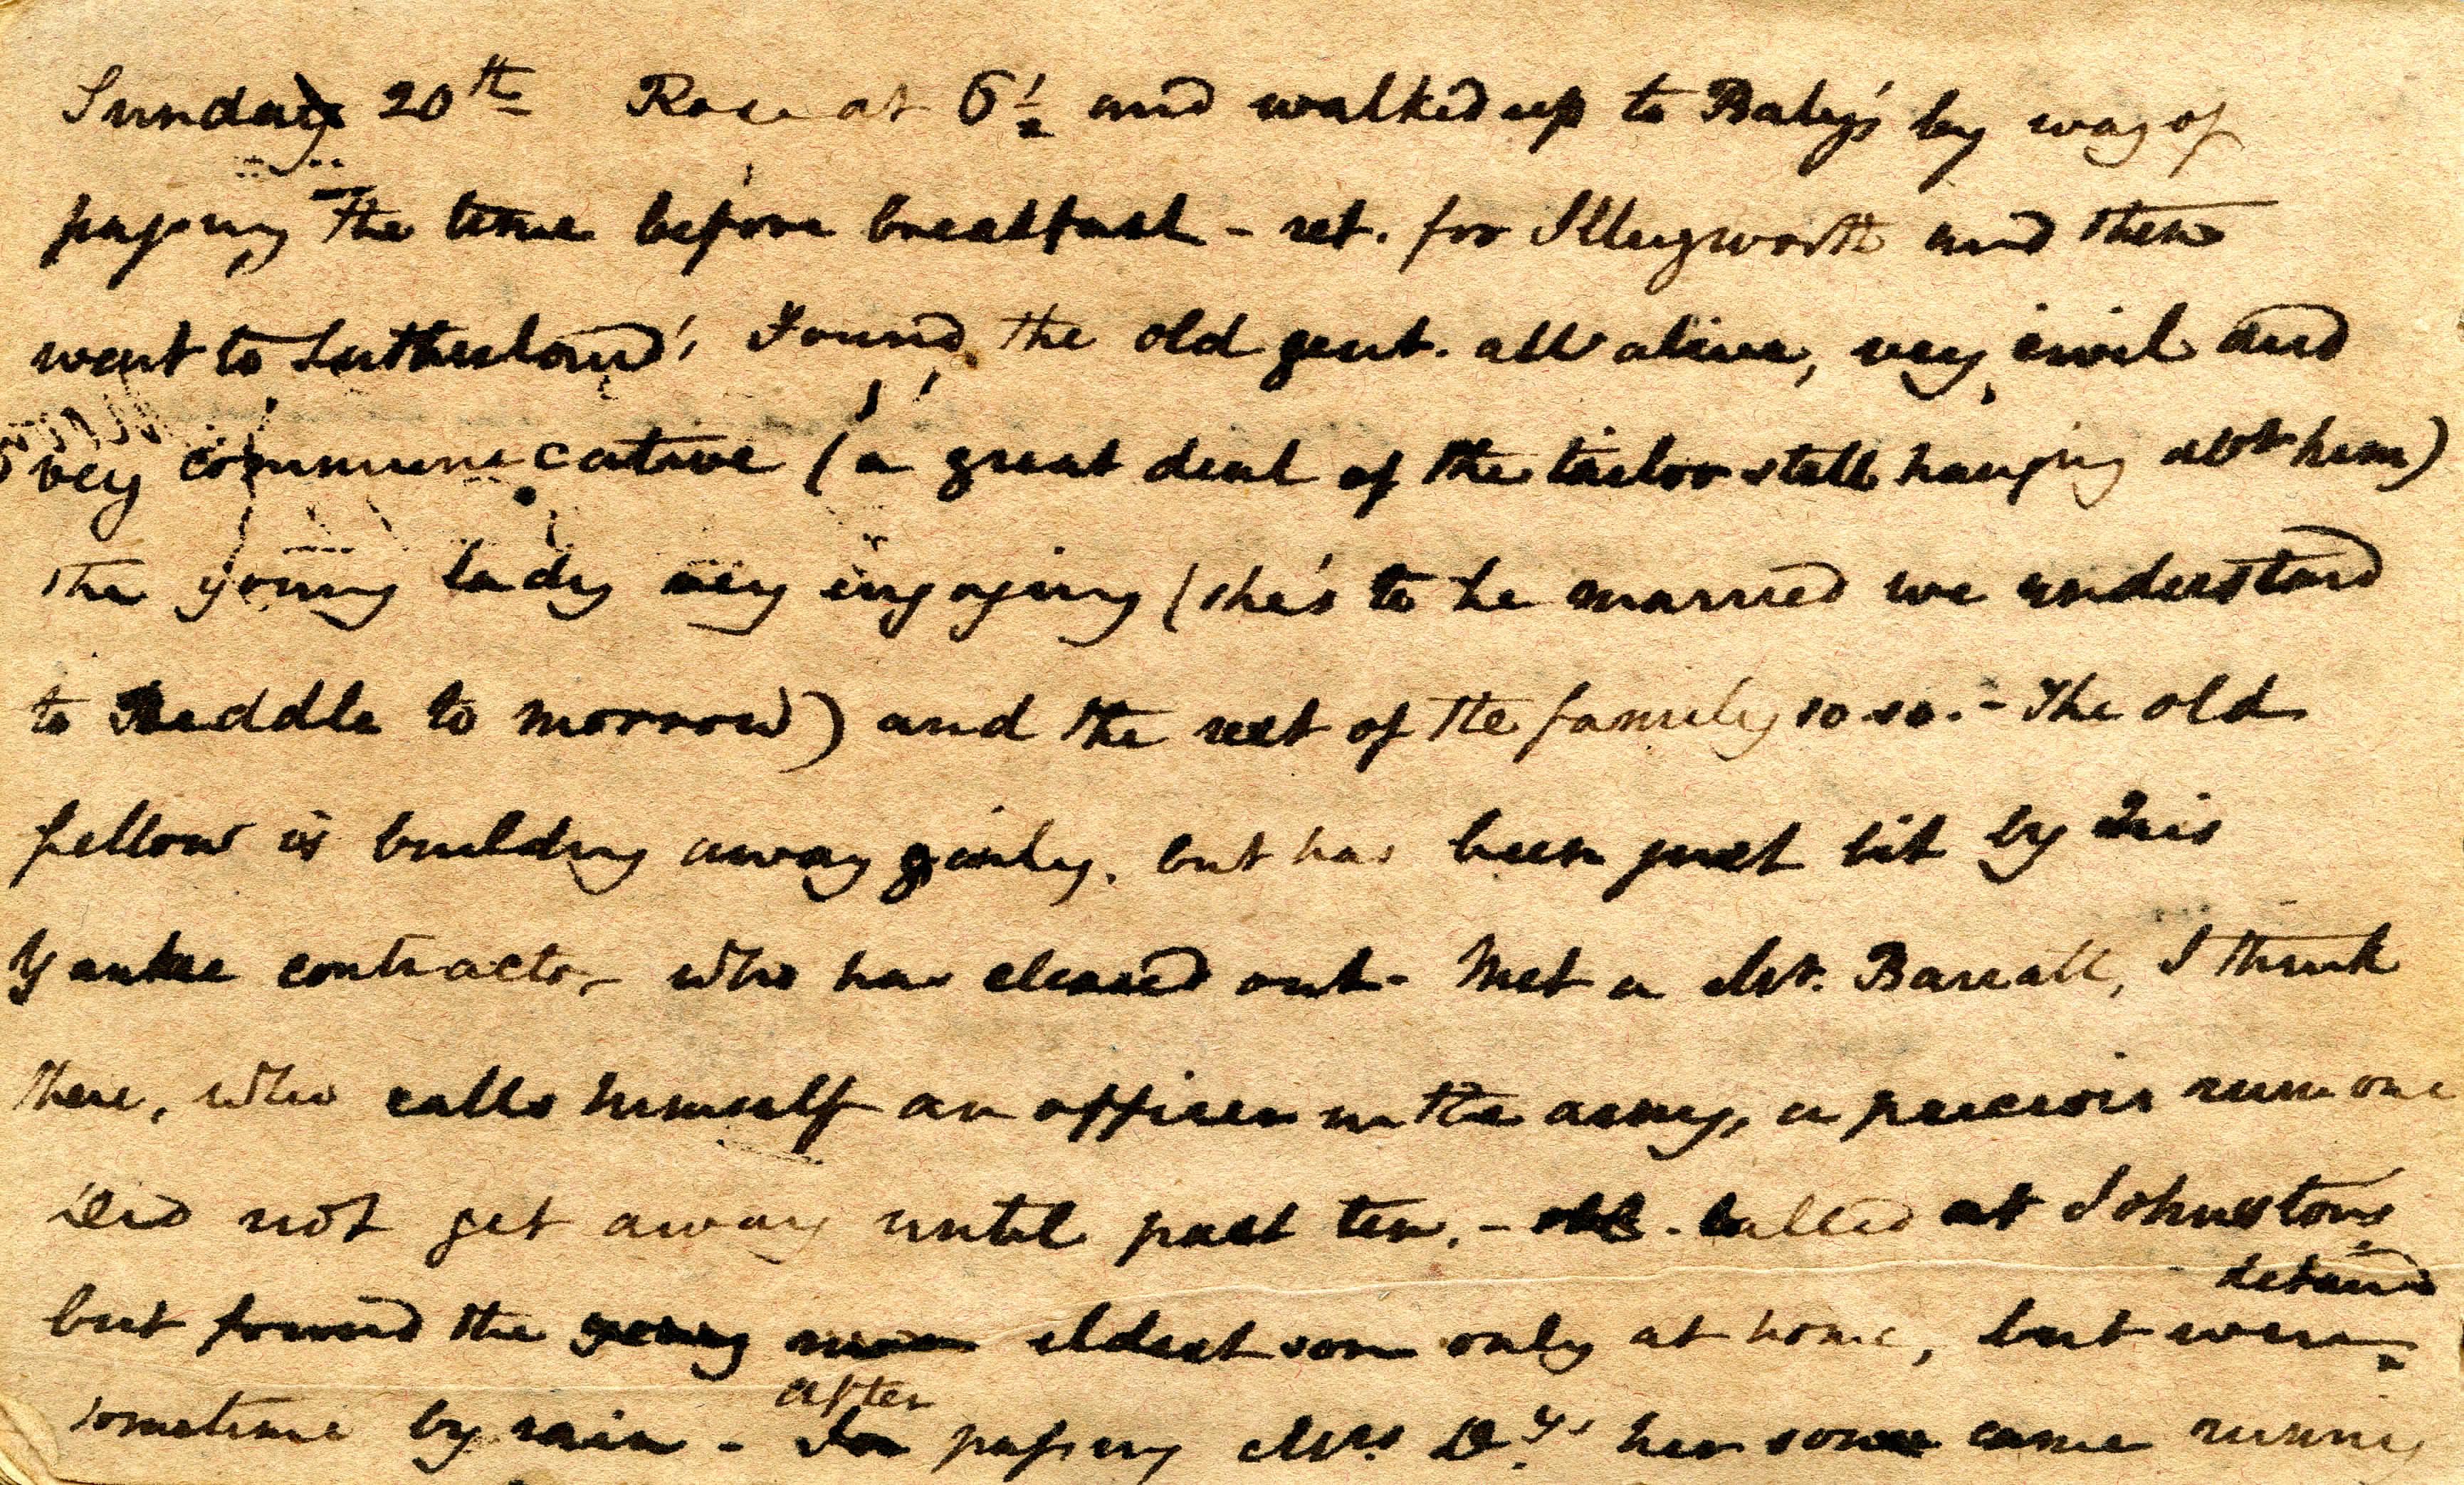 Sunday 20th Rose at 6½ and walked up to Baby's by way of
passing the time before breakfast - ret. for Illingworth and then
went to Sutherland's Found the old gent. all alive, very civil and
very communicative (a great deal of the tailor still hanging abt him)
the young lady very engaging (she's to be married we understand
to Beddle to morrow) and the rest of the family so so. - The old
fellow is building away gaily, but has been just bit by his
Yankee contractor who has cleared out - Met a Mr. Bareall, I think
there, who calls himself an officer in the army, a precious rum one
Did not get away until past ten. - called at Johnstons
but found the young man eldest son only at home, but were detaind
sometime by rain - after passing Mrs Dy's her son came runnig